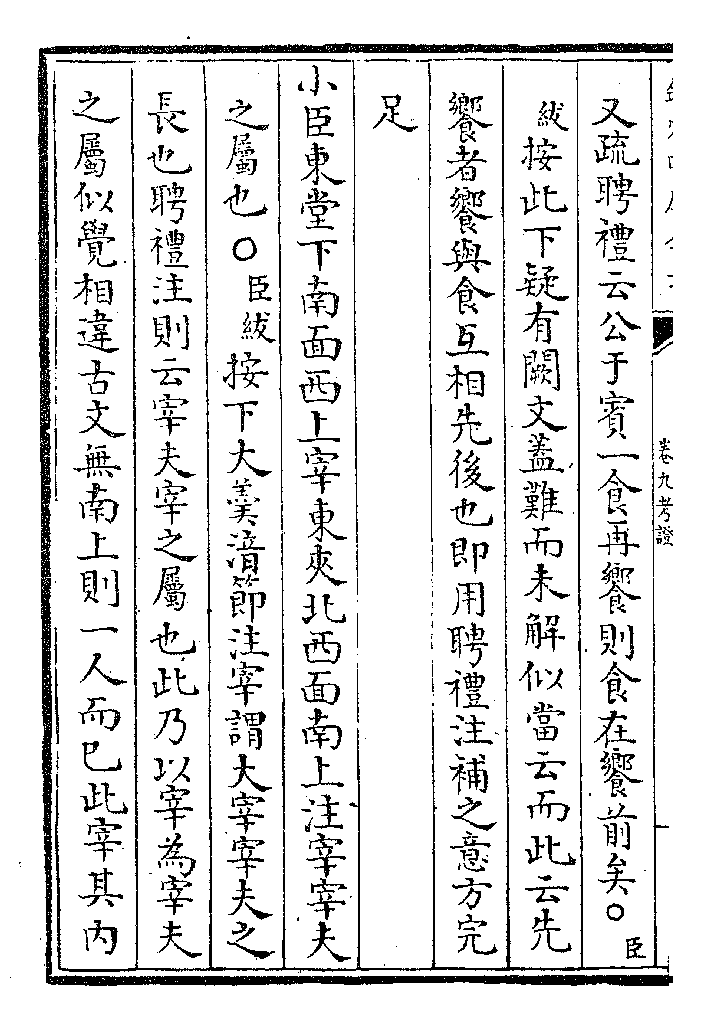 卷九考證
又疏聘禮云公于賓一食再饗則食在饗前矣〇臣
紱按此下疑有闕文蓋難而未解似當云而此云先
饗者饗與食互相先後也即用聘禮注補之意方完
足
小臣東堂下南面西上宰東夾北西面南上注宰宰夫
之屬也〇臣紱按下大羹湇節注宰謂大宰宰夫之
長也聘禮注則云宰夫宰之屬也此乃以宰為宰夫
之屬似覺相違古文無南上則一人而已此宰其内